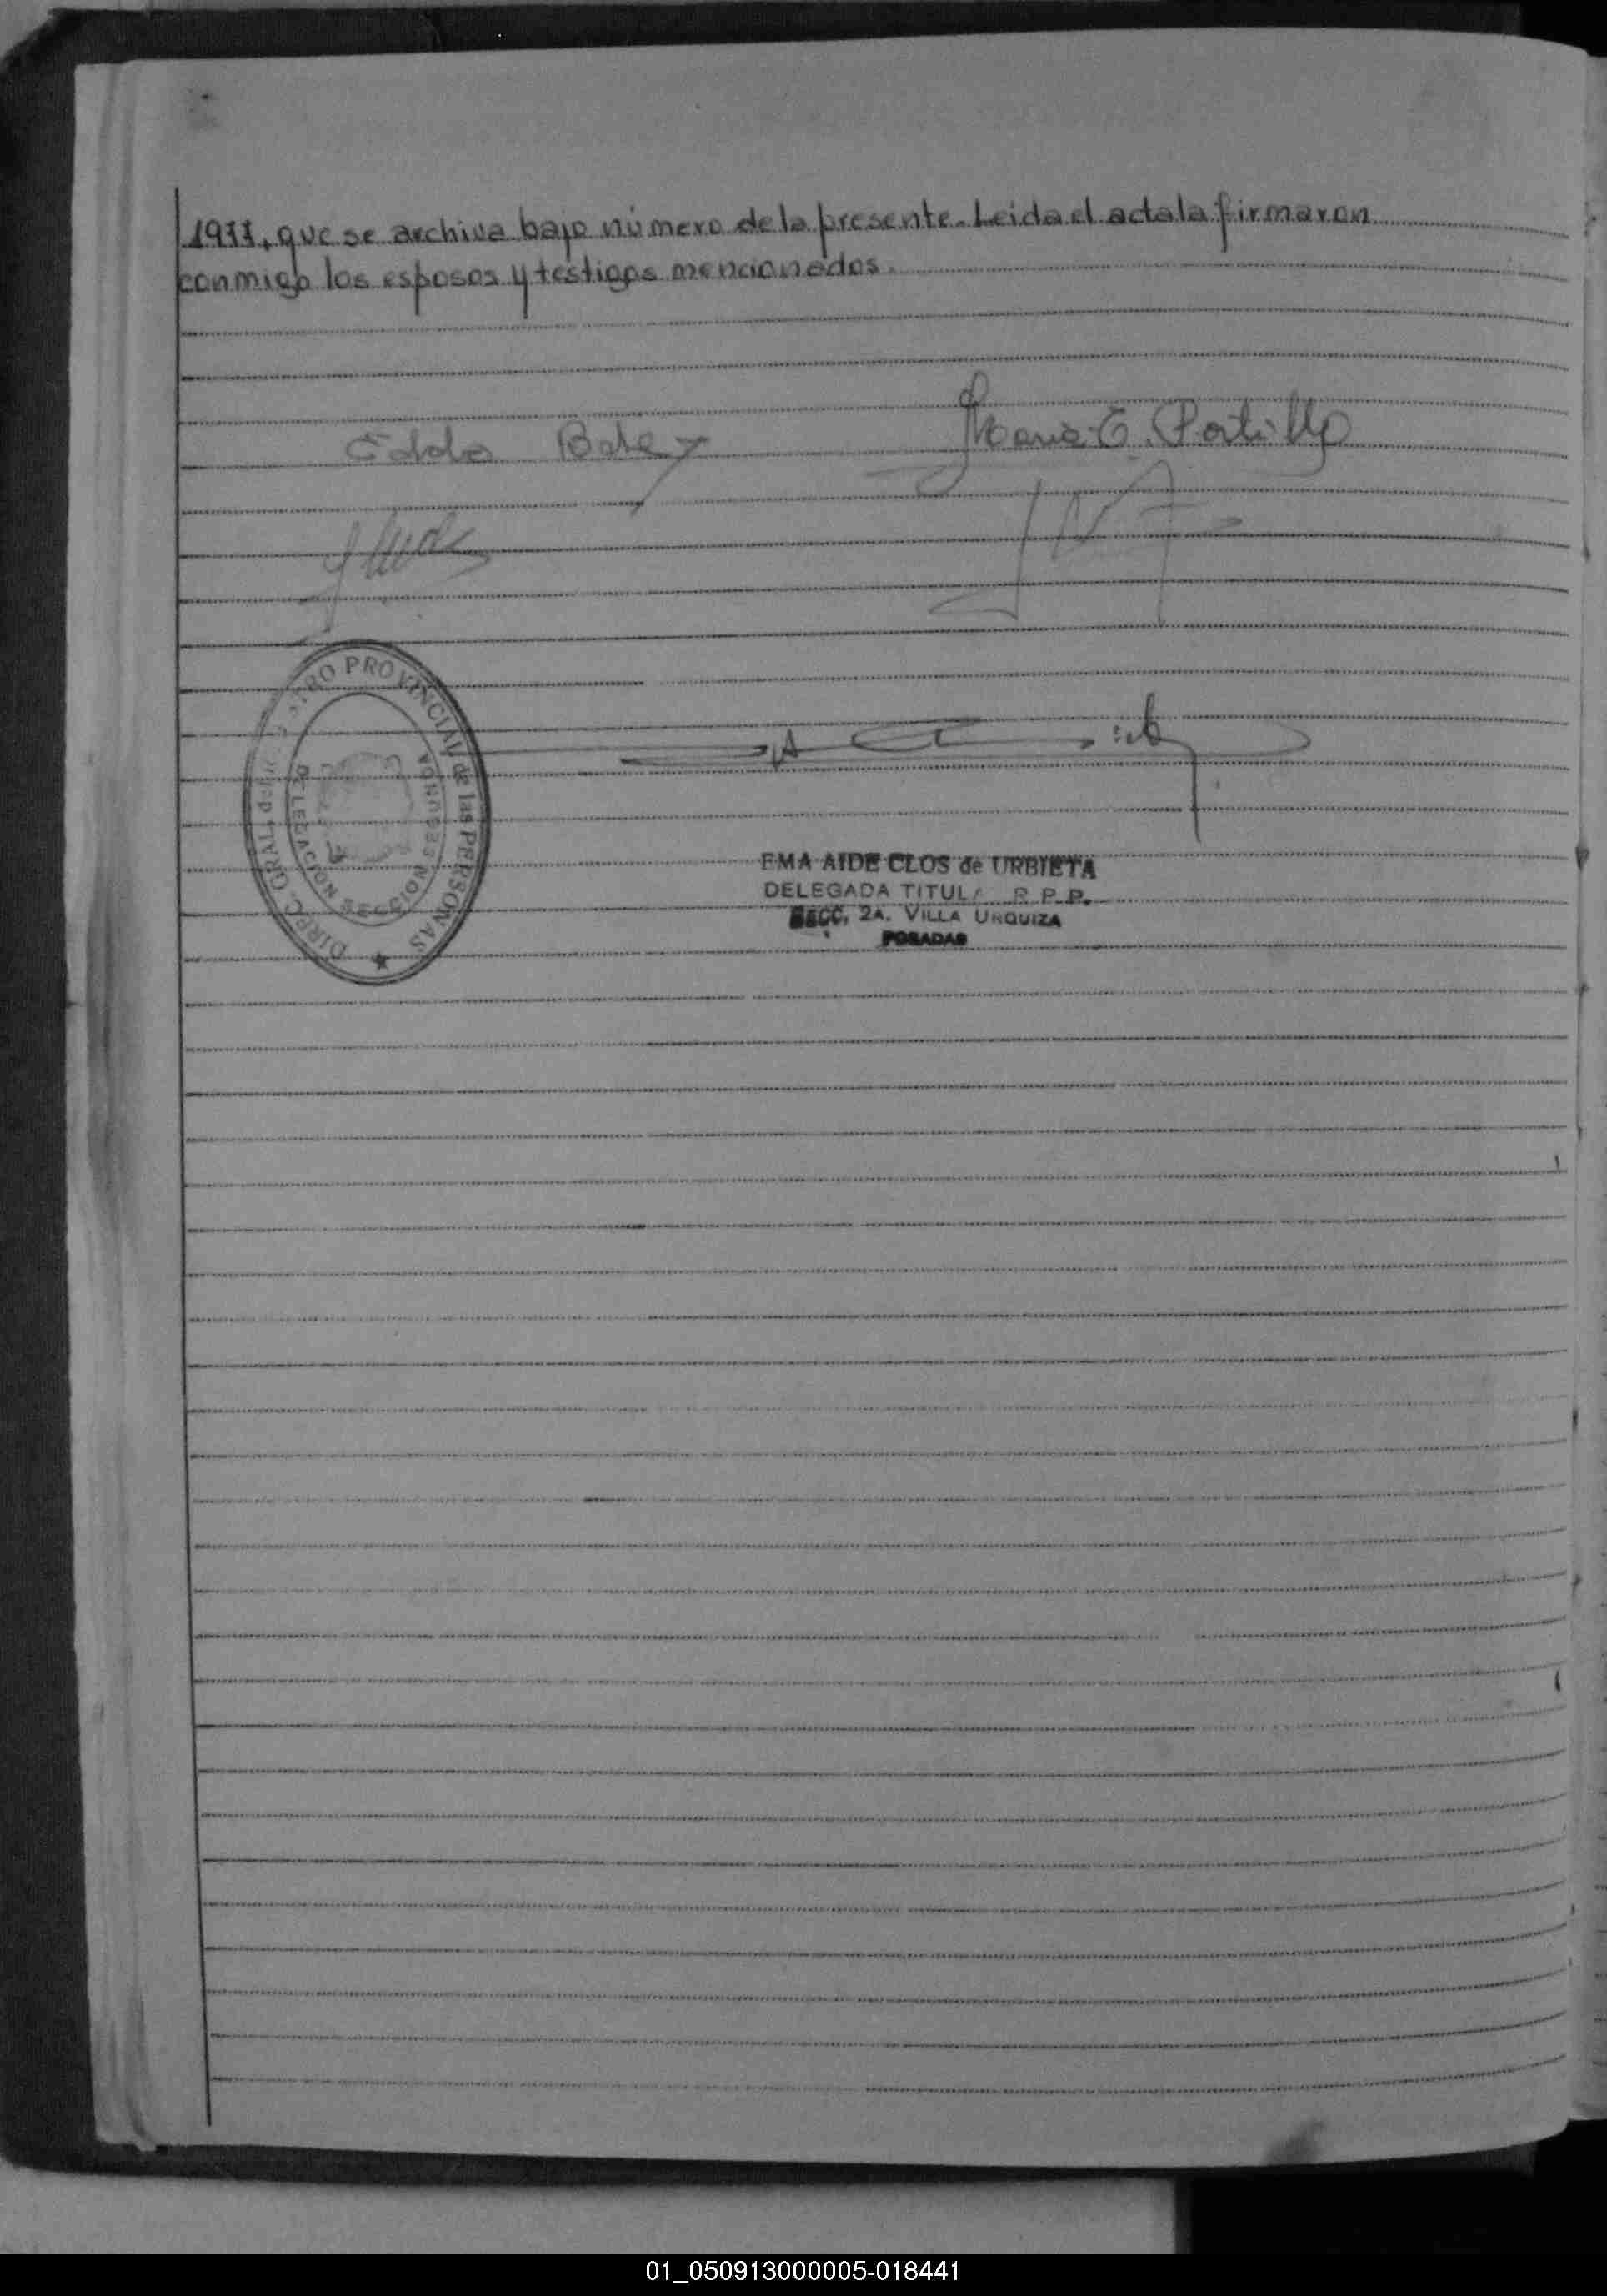 1977, que se archiva bajo número de la presente. Leida el acta la firmaron
conmigo los esposos y testigos mencionados.
Maria E. Portillo
DIREC. GRAL. del PROVINCIAL de las PERSONAS
DELEGACION SECCION SEGUNDA
EMA AIDE CLOS de URBIETA
DELEGADA TITUL R.P.P.
SECC. 2A. VILLA URQUIZA
POSADAS
01_050913000005-018441